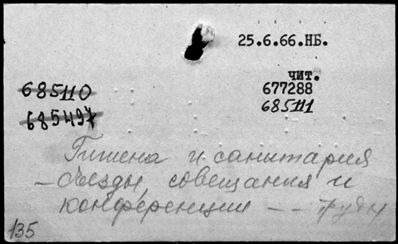 25.6.66.НБ.
чит.
677288
685111
685110
68549
Гигиена и санитария
– съезды, совещания и
конференции – – труды
135